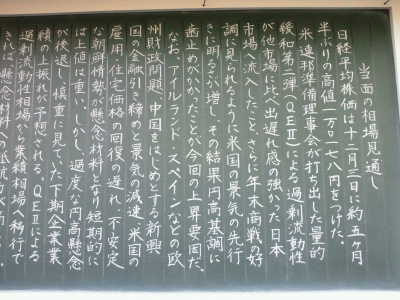 当面の相場見通し
日経平均株価は十二月三日に約五ヶ月
半ぶりの高値一万〇一七八円をつけた。
米連邦準備理事会が打ち出した量的
緩和第二弾(QEⅡ)による過剰流動性
が他市場に比べ出遅れ感の強かった日本
市場へ流入したこと、さらに年末商戦の好
調に見られるように米国の景気の先行
きに明るさが増し、その結果円高基調に
歯止めがかかったことが今回の上昇要因だ。
なお、アイルランド・スペインなどの欧
州財政問題、中国をはじめとする新興
国の金融引き締めと景気の減速、米国の
雇用・住宅価格の回復の遅れ、不安定
な朝鮮情勢が懸念材料となり短期的に
は上値は重い。しかし、過度な円高懸念
が後退し、慎重に見ていた下期企業業
績の上振れが予想される。QEⅡによる
過剰流動性相場から業績相場へ移行で
きれば懸念材料への